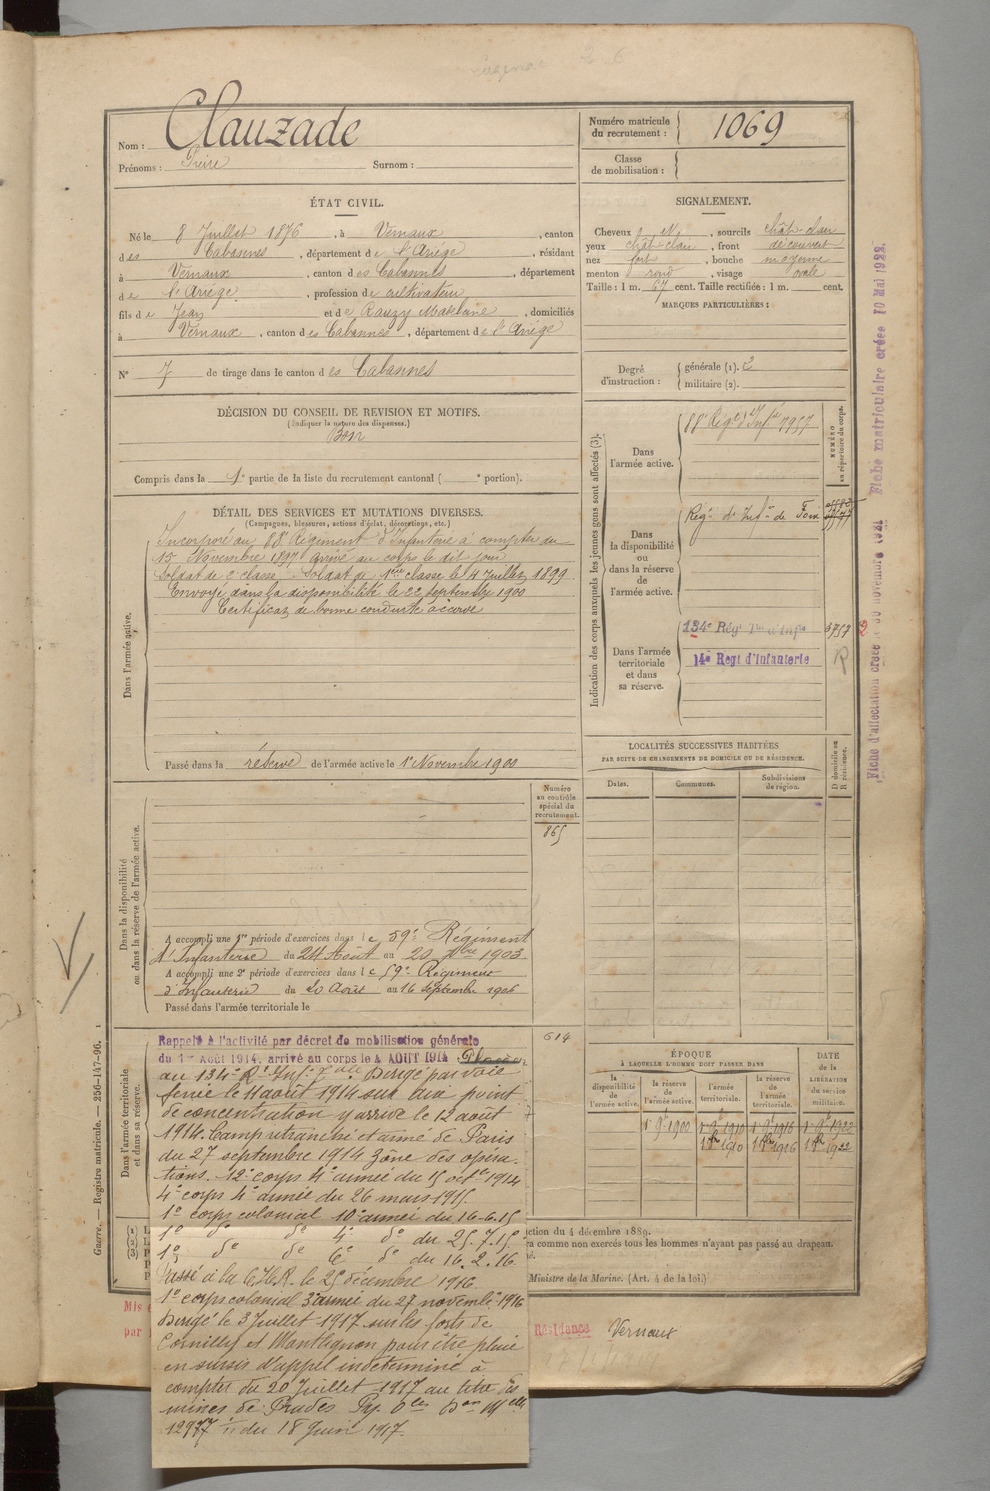 Nom : Clauzade
Prénoms : Surnom :
Numéro matricule
du recrutement : 1069
Classe
de mobilisation :
ÉTAT CIVIL.
Né le 8 Juillet 1876, à Vernaux, canton
des Cabannes, département de l'Ariège, résidant
à Vernaux, canton des Cabannes, département
de l'Ariège, profession de cultivateur
fils de Jean et de Rauzy Madelaine, domiciliés
à Vernaux, canton des Cabannes, département de l'Ariège
N° 7 de tirage dans le canton des Cabannes
SIGNALEMENT.
Cheveux, sourcils chât-clair
yeux chât-clair, front découvert
nez fort, bouche moyenne
menton rond, visage ovale
Taille : 1 m. 67 cent. Taille rectifiée : 1 m. cent.
MARQUES PARTICULIÈRES :
Degré
d'instruction :
générale (1). 2
militaire (2).
DÉCISION DU CONSEIL DE REVISION ET MOTIFS.
(Indiquer la nature des dispenses.)
Bon
Compris dans la 1e partie de la liste du recrutement cantonal ( e portion).
DÉTAIL DES SERVICES ET MUTATIONS DIVERSES.
(Campagnes, blessures, actions d'éclat, décorations, etc.)
Dans l'armée active.
Incorporé au 88e Régiment d'Infanterie à compter du
15 Novembre 1897 arrivé au corps le dit jour
Soldat de 2e classe. Soldat de 1ère classe le 4 Juillet 1899
Envoyé dans la disponibilité le 22 septembre 1900
Certificat de bonne conduite accordé
Passé dans la réserve de l'armée active le 1er Novembre 1900
Indication des corps auxquels les jeunes gens sont affectés (3).
NUMÉRO
au répertoire du corps.
Dans
l'armée active.
88e Régt d'Infie 7957
Dans
la disponibilité
ou
dans la réserve
de
l'armée active.
Régt d'Infie de Foix
Dans l'armée
territoriale
et dans
sa réserve.
134e Régt Ter d'Infie 3757
14e Regt d'Infanterie R
LOCALITÉS SUCCESSIVES HABITÉES
PAR SUITE DE CHANGEMENTS DE DOMICILE OU DE RÉSIDENCE.
Dates. Communes. Subdivisions
de région.
D domicile ou
R résidence.
Dans la disponibilité
ou dans la réserve de l'armée active.
Numéro
au contrôle
spécial du
recrutement.
865
A accompli une 1re période d'exercices dans le 59e Régiment
d'Infanterie du 24 Août au 20 7bre 1903.
A accompli une 2e période d'exercices dans le 59e Régiment
d'Infanterie du 20 Août au 16 Septembre 1906
Passé dans l'armée territoriale le
Dans l'armée territoriale
et dans sa réserve.
614
Rappelé à l'activité par décret de mobilisation générale
du 1er Août 1914, arrivé au corps le 4 AOUT 1914
au 134e Rt Inf. Tale Dirigé par voie
ferrée le 11 août 1914 sur dix point
de concentration y arrive le 12 août
1914. Camp retranché et armé de Paris
du 27 septembre 1914 Zône des opéra-
tions. 12e corps 4e armée du 15 octe 1914
4e corps 4e armée du 26 mars 1915
1e corps colonial 10e armée du 16-6.15
1e do de 4e do du 25.7.15
1e do de 6e do du 16.2.16.
Passé à la C.H.R. le 25 décembre 1916
1e corps colonial 3e armée du 27 novembre 1916
Dirigé le 3 Juillet 1917 sur les forts de
Cormilly et Montlignon pour être placé
en sursis d'appel indéterminé à
compter du 20 Juillet 1917 au titre des
mines de Prades Py. Oles
12977 du 18 Juin 1917.
ÉPOQUE
À LAQUELLE L'HOMME DOIT PASSER DANS
DATE
de la
LIBÉRATION
du service
militaire.
la
disponibilité
de
l'armée active.
la réserve
de
l'armée active.
l'armée
territoriale.
la réserve
de l'armée
territoriale.
1er 9bre 1900 1er 9bre 1910 1er 9bre 1916 1er 9bre 1922
1er 8bre 1910 1er 8bre 1916 1er 8bre 1922
ction du 4 décembre 1889.
ra comme non exercés tous les hommes n'ayant pas passé au drapeau.
Ministre de la Marine. (Art. 4 de la loi.)
Mis
par
Résidence Vernaux
Guerre. — Registre matricule. — 256-147-96.
Fiche d'affectation créée le 30 novembre 1921 Fiche matriculaire créée 10 Mai 1922.